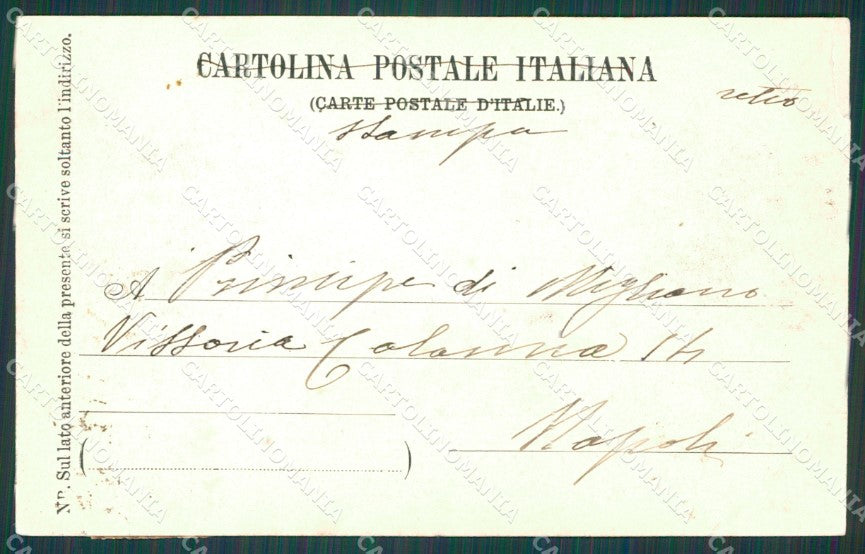 CARTOLINA POSTALE ITALIANA
(CARTE POSTALE D'ITALIE.)
retro
Stampa
A Principe di Migliano
Vittoria Colonna 14
Napoli
NB. Sul lato anteriore della presente si scrive soltanto l'indirizzo.
CARTOLINOMANIA